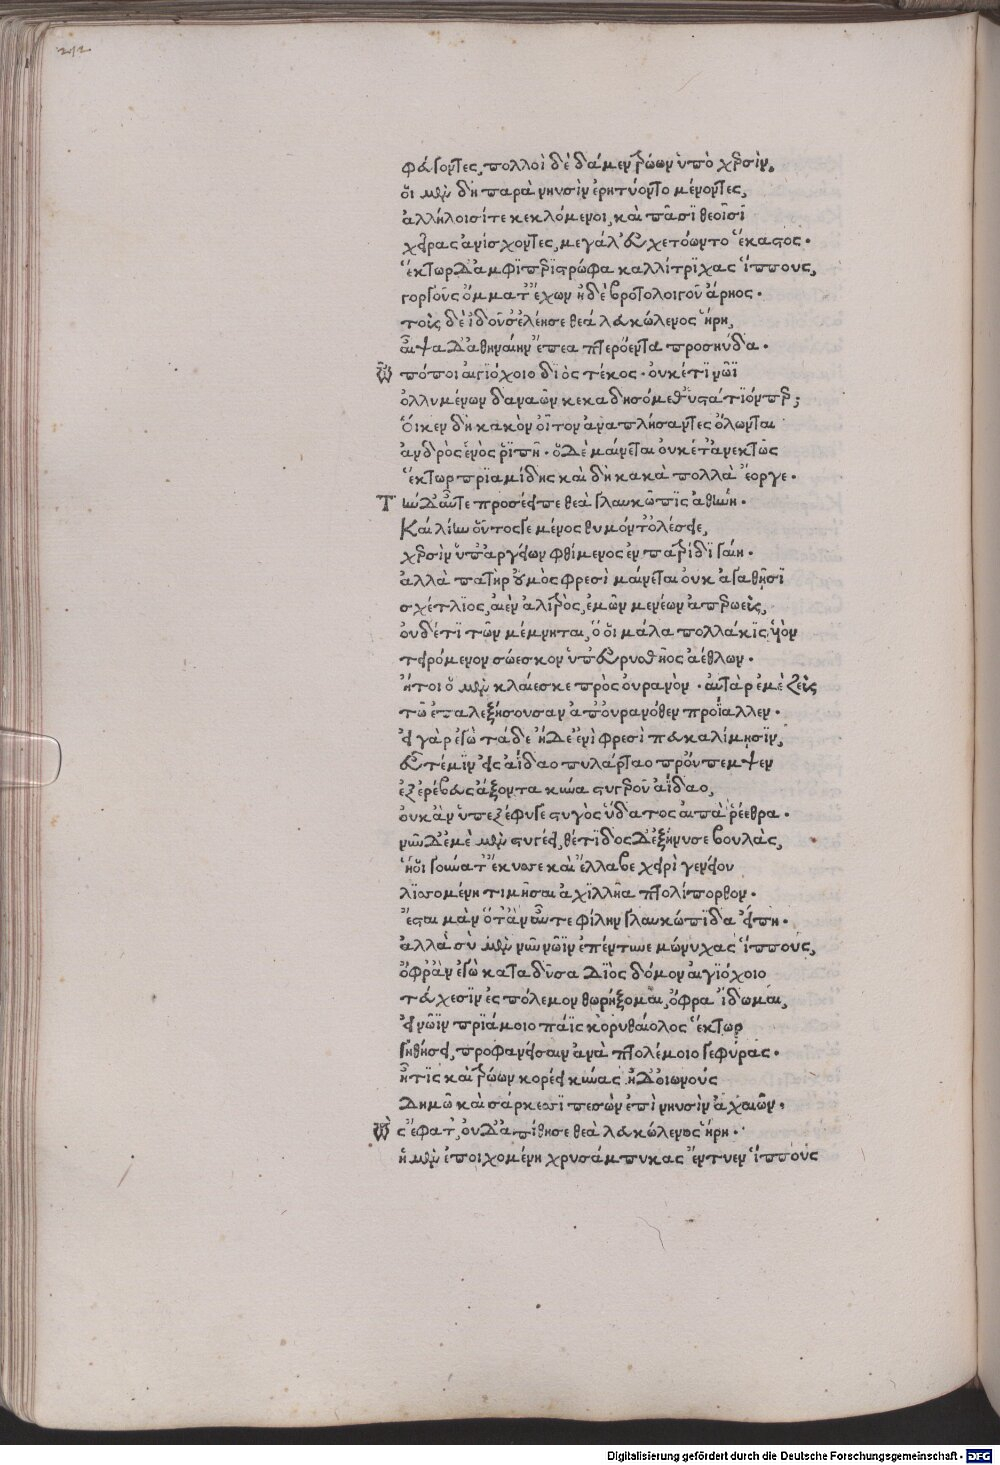 242
φεύγοντες, πολλοὶ δὲ δάμεν τρώων ὑπὸ χερσὶν.
ὅι μὲν δὴ παρὰ νηυσὶν ἐρητύοντο μένοντες,
ἀλλήλοισίτε κεκλόμενοι, καὶ πᾶσϊ θεοῖσϊ
χεῖρας ἀνίσχοντες, μεγάλ' εὐχετόωντο ἕκαστος.
Ἕκτωρ δ' ἀμφϊπερϊστρώφα καλλίτρϊχας ἵππους,
γοργοῦς ὄμματ' ἔχων ἠδὲ βροτολοιγοῦ ἄρηος.
τοὺς δὲ ἰδοῦσ' ἐλέησε θεὰ λευκώλενος ἥρη,
αἶψα δ' ἀθηναίην ἔπεα πτερόεντα προσηύδα.
Ὢ πόποι αἰγϊόχοιο δϊὸς τέκος. ὀυκέτϊ νῶϊ
ὀλλυμένων δαναῶν κεκαδησόμεθ' ὑστάτϊόνπερ;
Ὅικεν δὴ κακὸν οἶτον ἀναπλήσαντες ὄλωνται
ἀνδρὸς ἑνὸς ῥϊπῆ. ὅδε μαίνεται ὀυκέτ' ἀνεκτῶς
Ἕκτωρ πρϊαμίδης καὶ δὴ κακὰ πολλὰ ἔοργε.
Τὴν δ' αὖτε προσέειπε θεὰ γλαυκῶπϊς ἀθήνη.
Καὶ λίην οὗτοσγε μένος θυμόντ' ὀλέσειε,
χερσὶν ὑπ' ἀργείων φθίμενος ἐν πατρίδϊ γαίη.
ἀλλὰ πατὴρ οὑμὸς φρεσὶ μαίνεται ὀυκ ἀγαθῇσϊ
σχέτλϊος, ἀιὲν ἀλιτρὸς, ἐμῶν μενέων ἀπερωεὺς,
ὀυδέτϊ τῶν μέμνηται, ὅ ὅι μάλα πολλάκϊς ὑϊὸν
τειρόμενον σώεσκον ὑπ' ἐυρυσθῆος ἀέθλων.
ἤτοι ὃ μὲν κλαίεσκε πρὸς ὀυρανὸν. ἀυτὰρ ἐμὲ ζεὺς
τῶ ἐπαλεξήσουσαν ἀπ' ὀυρανόθεν προΐαλλεν.
ἐι γὰρ ἐγὼ τάδε ἤδε' ἐνὶ φρεσὶ πευκαλίμησϊν,
ἐυτέμϊν ἐις ἀΐδαο πυλάρταο προὔπεμψεν
ἐξ ἐρέβευς ἄξοντα κύνα στυγεροῦ ἀΐδαο,
ὀυκ ἂν ὑπεξέφυγε στυγὸς ὕδατος ἀιπὰ ῥέεθρα.
νῦν δ' ἐμὲ μὲν στυγέει, θέτϊδος δ' ἐξήνυσε βουλὰς,
ἥ ὅι γούνατ' ἔκυσσε καὶ ἔλλαβε χειρὶ γενείου
λϊσσομένη τιμῆσαι ἀχϊλλῆα πτολίπορθον.
ἔσται μὰν ὅτ' ἂν αὖτε φίλην γλαυκώπϊδα ἔιπη.
ἀλλὰ σὺ μὲν νῦν νῶϊν ἐπέντυνε μώνυχας ἵππους,
ὄφρ' ἂν ἐγὼ καταδῦσα δϊὸς δόμον ἀιγϊόχοιο
τεύχεσϊν ἐς πόλεμον θωρήξομαι, ὄφρα ἴδωμαι,
ἐι νῶϊν πρϊάμοιο πάϊς κορυθαίολος ἕκτωρ
γηθήσει, προφανείσαιν ἀνὰ πτολέμοιο γεφύρας.
ἤτϊς καὶ τρώων κορέει κύνας ἠδ' ὀιωνοὺς
δημῶ καὶ σάρκεσσϊ πεσὼν ἐπὶ νηυσὶν ἀχαιῶν.
Ὣς ἔφατ', ὀυδ' ἀπίθησε θεὰ λευκώλενος ἥρη.
ἡ μὲν ἐποιχομένη χρυσάμπυκας ἔντυεν ἵππους
Digitalisierung gefördert durch die Deutsche Forschungsgemeinschaft - DFG